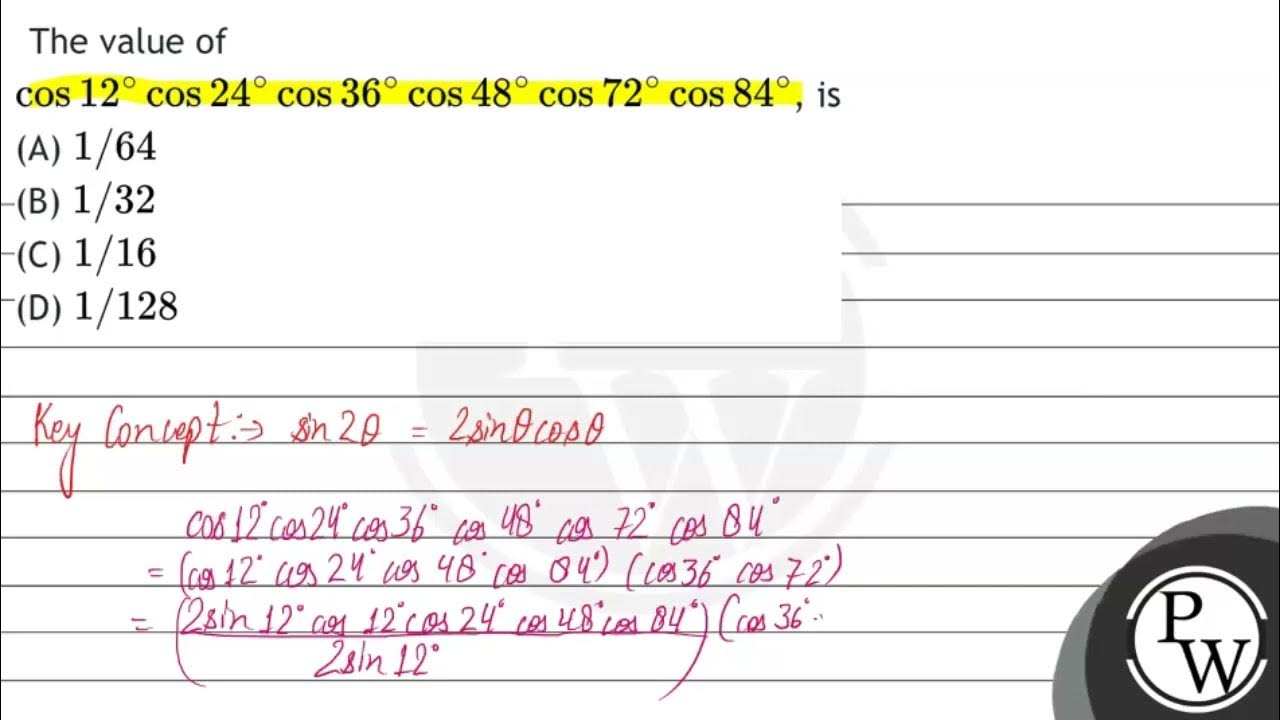 The value of
cos 12° cos 24° cos 36° cos 48° cos 72° cos 84°, is
(A) 1/64
(B) 1/32
(C) 1/16
(D) 1/128
Key Concept:→ sin2θ = 2sinθcosθ
cos12°cos24°cos36° cos 48° cos 72° cos 84°
= (cos12° cos 24° cos 48° cos 84°) (cos36° cos 72°)
= (2sin 12° cos 12°cos 24° cos48°cos 84°) (cos 36°..
2sin12°
P
W
W